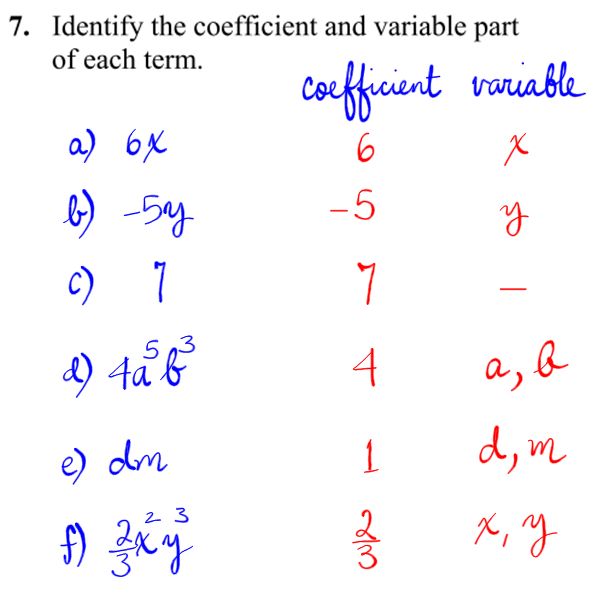 7. Identify the coefficient and variable part
of each term.
coefficient variable
a) 6x 6 x
b) -5y -5 y
c) 7 7 —
d) 4a⁵b³ 4 a, b
e) dm 1 d, m
f) 2/3x²y³ 2/3 x, y